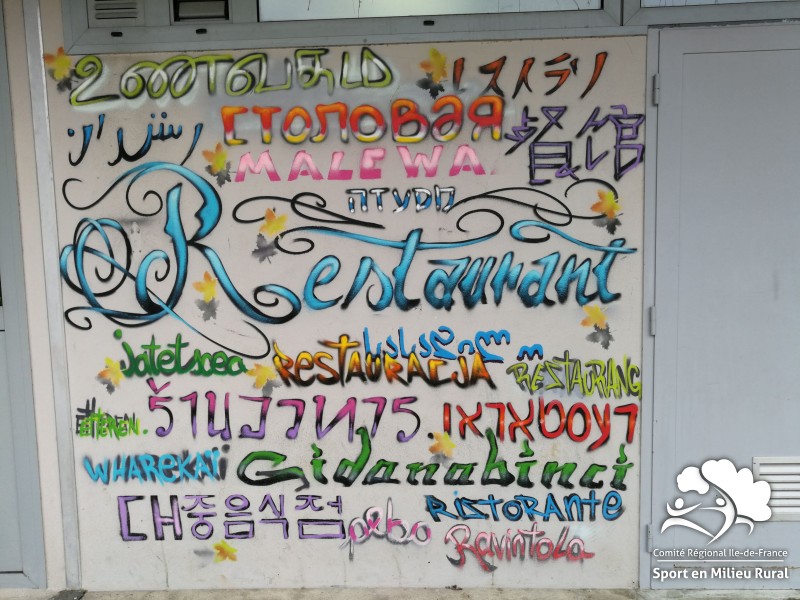 உணவகம் レストラン
رستوران СТОЛОВАЯ 餐館
MALEWA
Restaurant
jatetxea RESTAURACJA RESTAURANG
ร้านอาหาร
WHAREKAI Gidanabinci
대중음식점 RISTORANTE
Ravintola
Comité Régional Ile-de-France
Sport en Milieu Rural